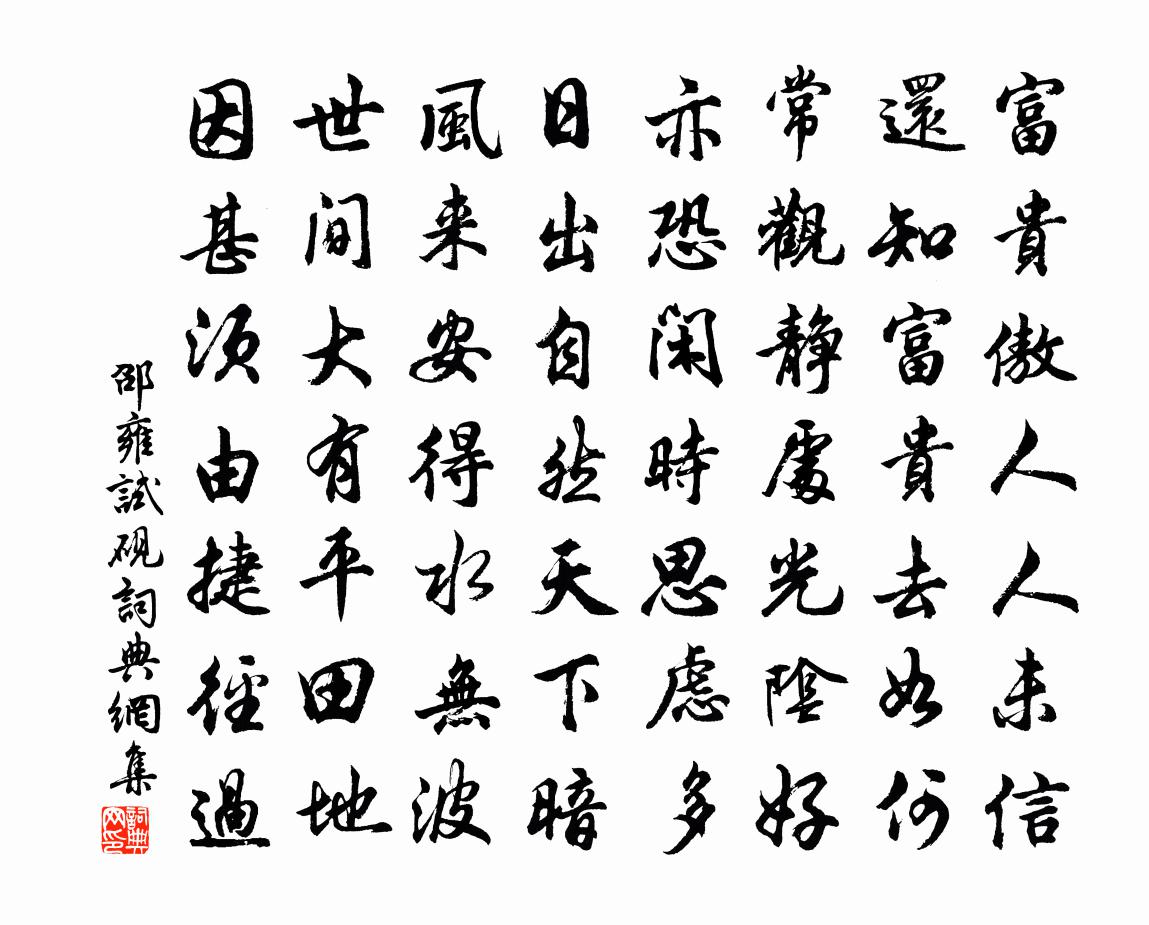 富貴傲人人未信
還知富貴去如何
常觀靜處光陰好
亦恐閑時思慮多
日出自然天下暗
風来安得水無波
世間大有平田地
因甚須由捷徑過
邵雍試硯詞典網集
詞典网印